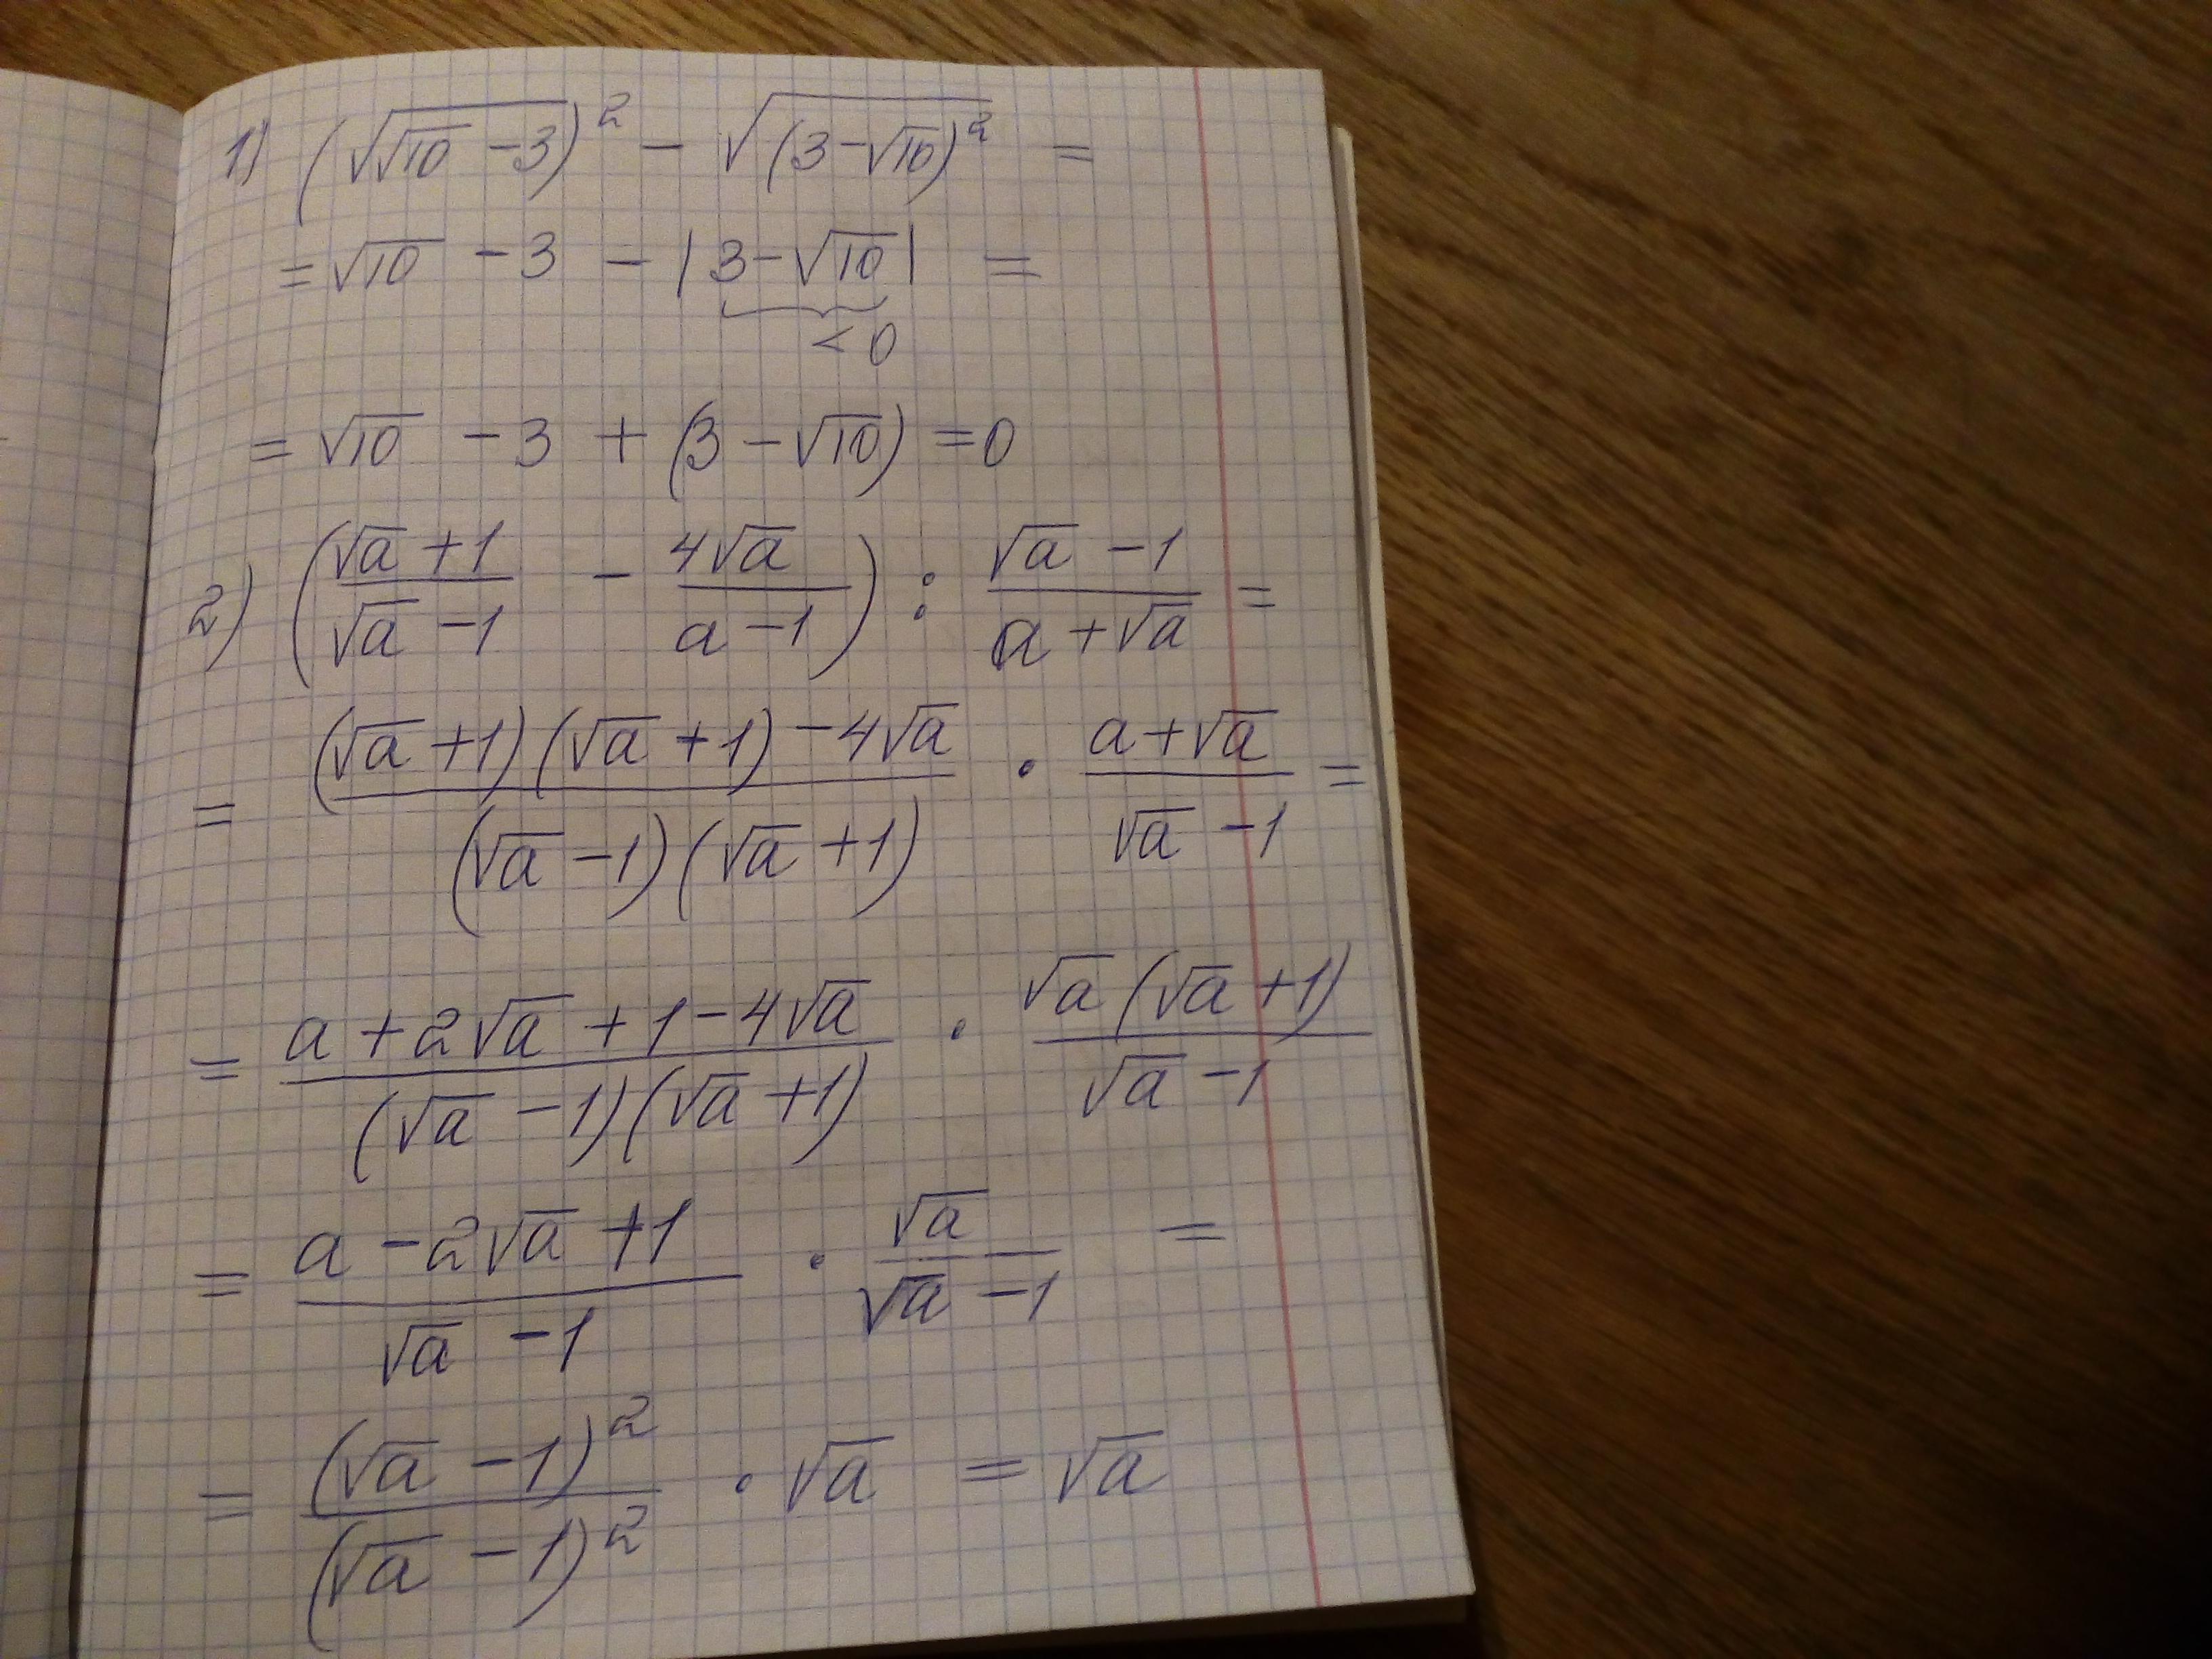 1) (√(√10 − 3))² − √((3 − √10)²) =
= √10 − 3 − |3 − √10| =
< 0
= √10 − 3 + (3 − √10) = 0
2) ((√a + 1)/(√a − 1) − 4√a/(a − 1)) : (√a − 1)/(a + √a) =
= ((√a + 1)(√a + 1) − 4√a)/((√a − 1)(√a + 1)) · (a + √a)/(√a − 1) =
= (a + 2√a + 1 − 4√a)/((√a − 1)(√a + 1)) · √a(√a + 1)/(√a − 1)
= (a − 2√a + 1)/(√a − 1) · √a/(√a − 1) =
= (√a − 1)²/(√a − 1)² · √a = √a